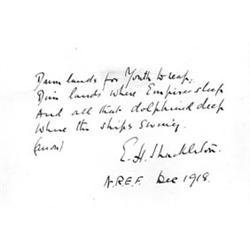 Dim lands for Youth to reap,
Dim lands where Empires sleep
And all that dolphined deep
Where the ships swing.
(anon)
E. H. Shackleton.
N.R.E.F. Dec 1918.